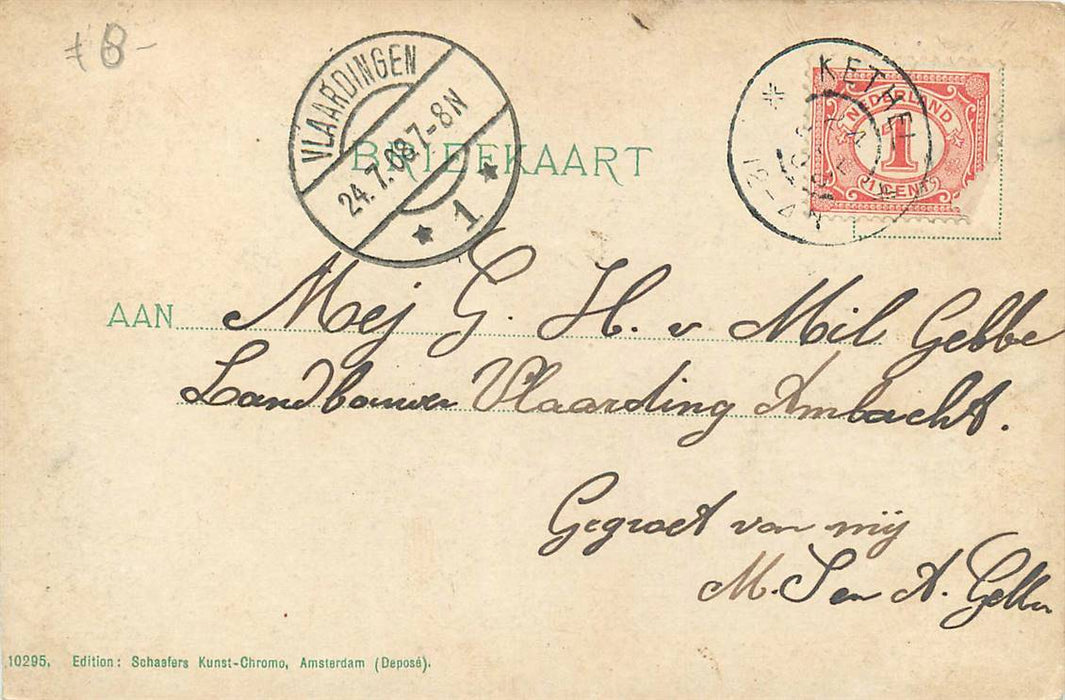 VLAARDINGEN
24.7.08 7-8N
1
KETHEL
NEDERLAND
1
1 CENT
BRIEFKAART
AAN Mej G. H. v Mil Gebbe
Landbouwer Vlaarding Ambacht.
Gegroet van mij
M. S en A. Gebbe
10295. Edition: Schaefers Kunst-Chromo, Amsterdam (Deposé).